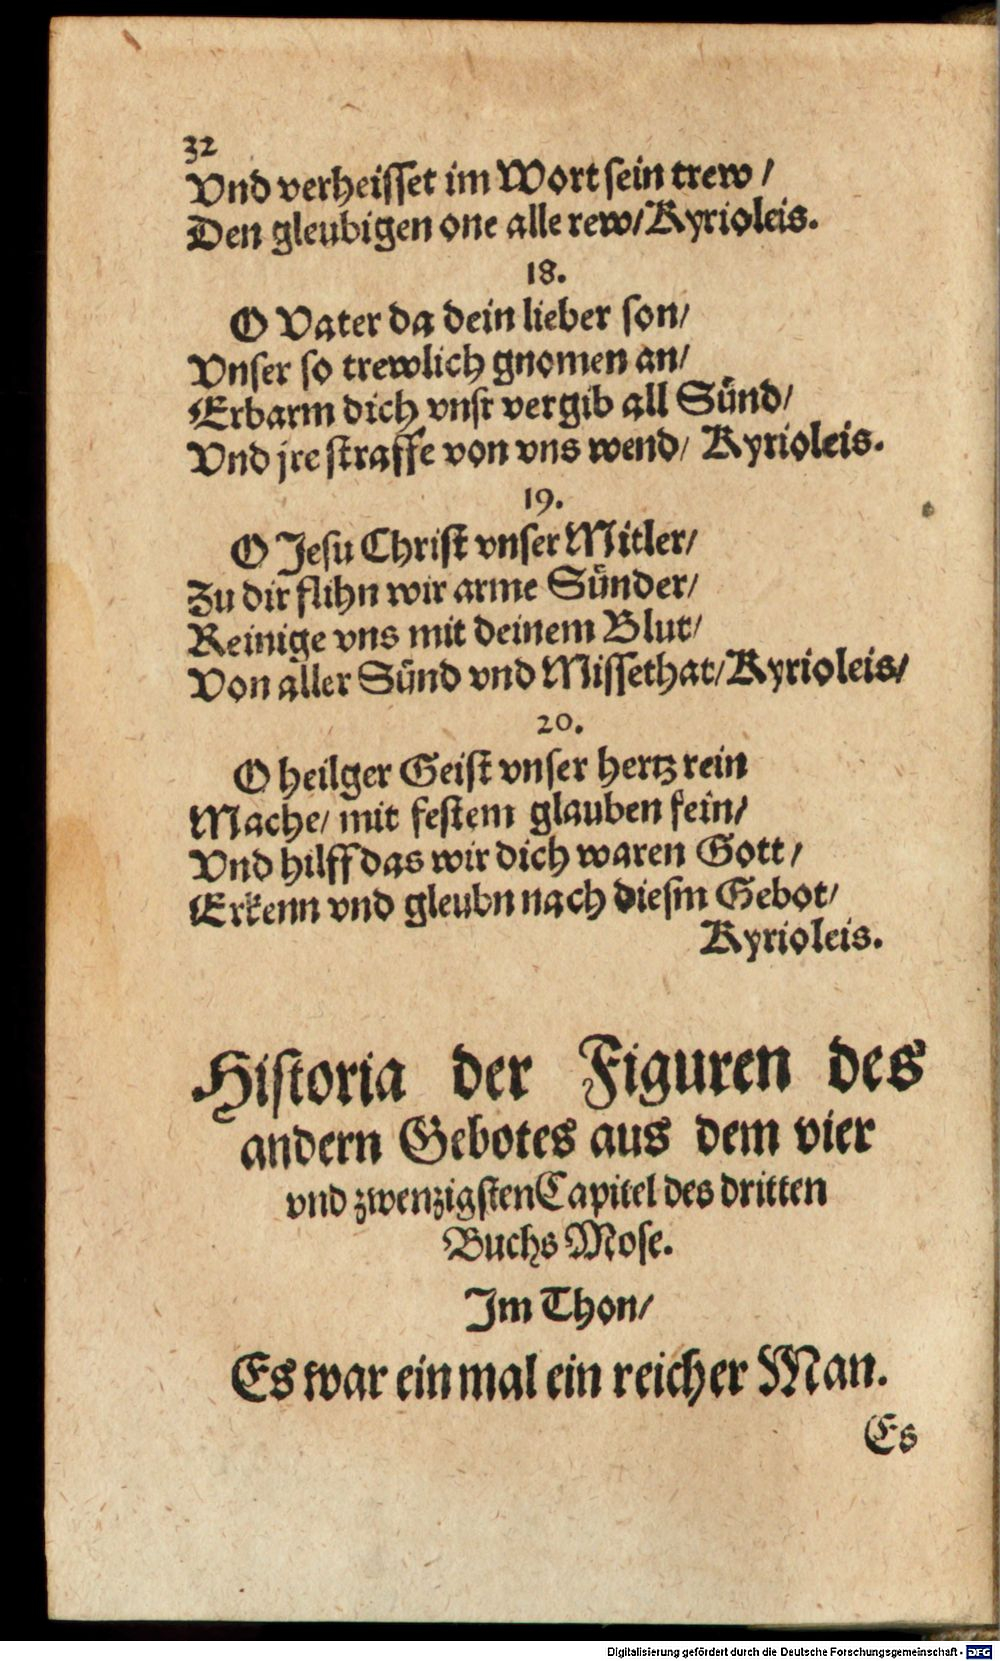 32
Vnd verheisset im Wort sein trew /
Den gleubigen one alle rew/ Kyrioleis.
18.
O Vater da dein lieber son/
Vnser so trewlich gnomen an/
Erbarm dich vnsr vergib all Sünd/
Vnd jre straffe von vns wend/ Kyrioleis.
19.
O Jesu Christ vnser Mitler/
Zu dir flihn wir arme Sünder/
Reinige vns mit deinem Blut/
Von aller Sünd vnd Missethat/ Kyrioleis/
20.
O heilger Geist vnser hertz rein
Mache/ mit festem glauben fein/
Vnd hilff das wir dich waren Gott/
Erkenn vnd gleubn nach diesm Gebot/
Kyrioleis.
Historia der Figuren des
andern Gebotes aus dem vier
vnd zwenzigsten Capitel des dritten
Buchs Mose.
Im Thon/
Es war ein mal ein reicher Man.
Es
Digitalisierung gefördert durch die Deutsche Forschungsgemeinschaft - DFG